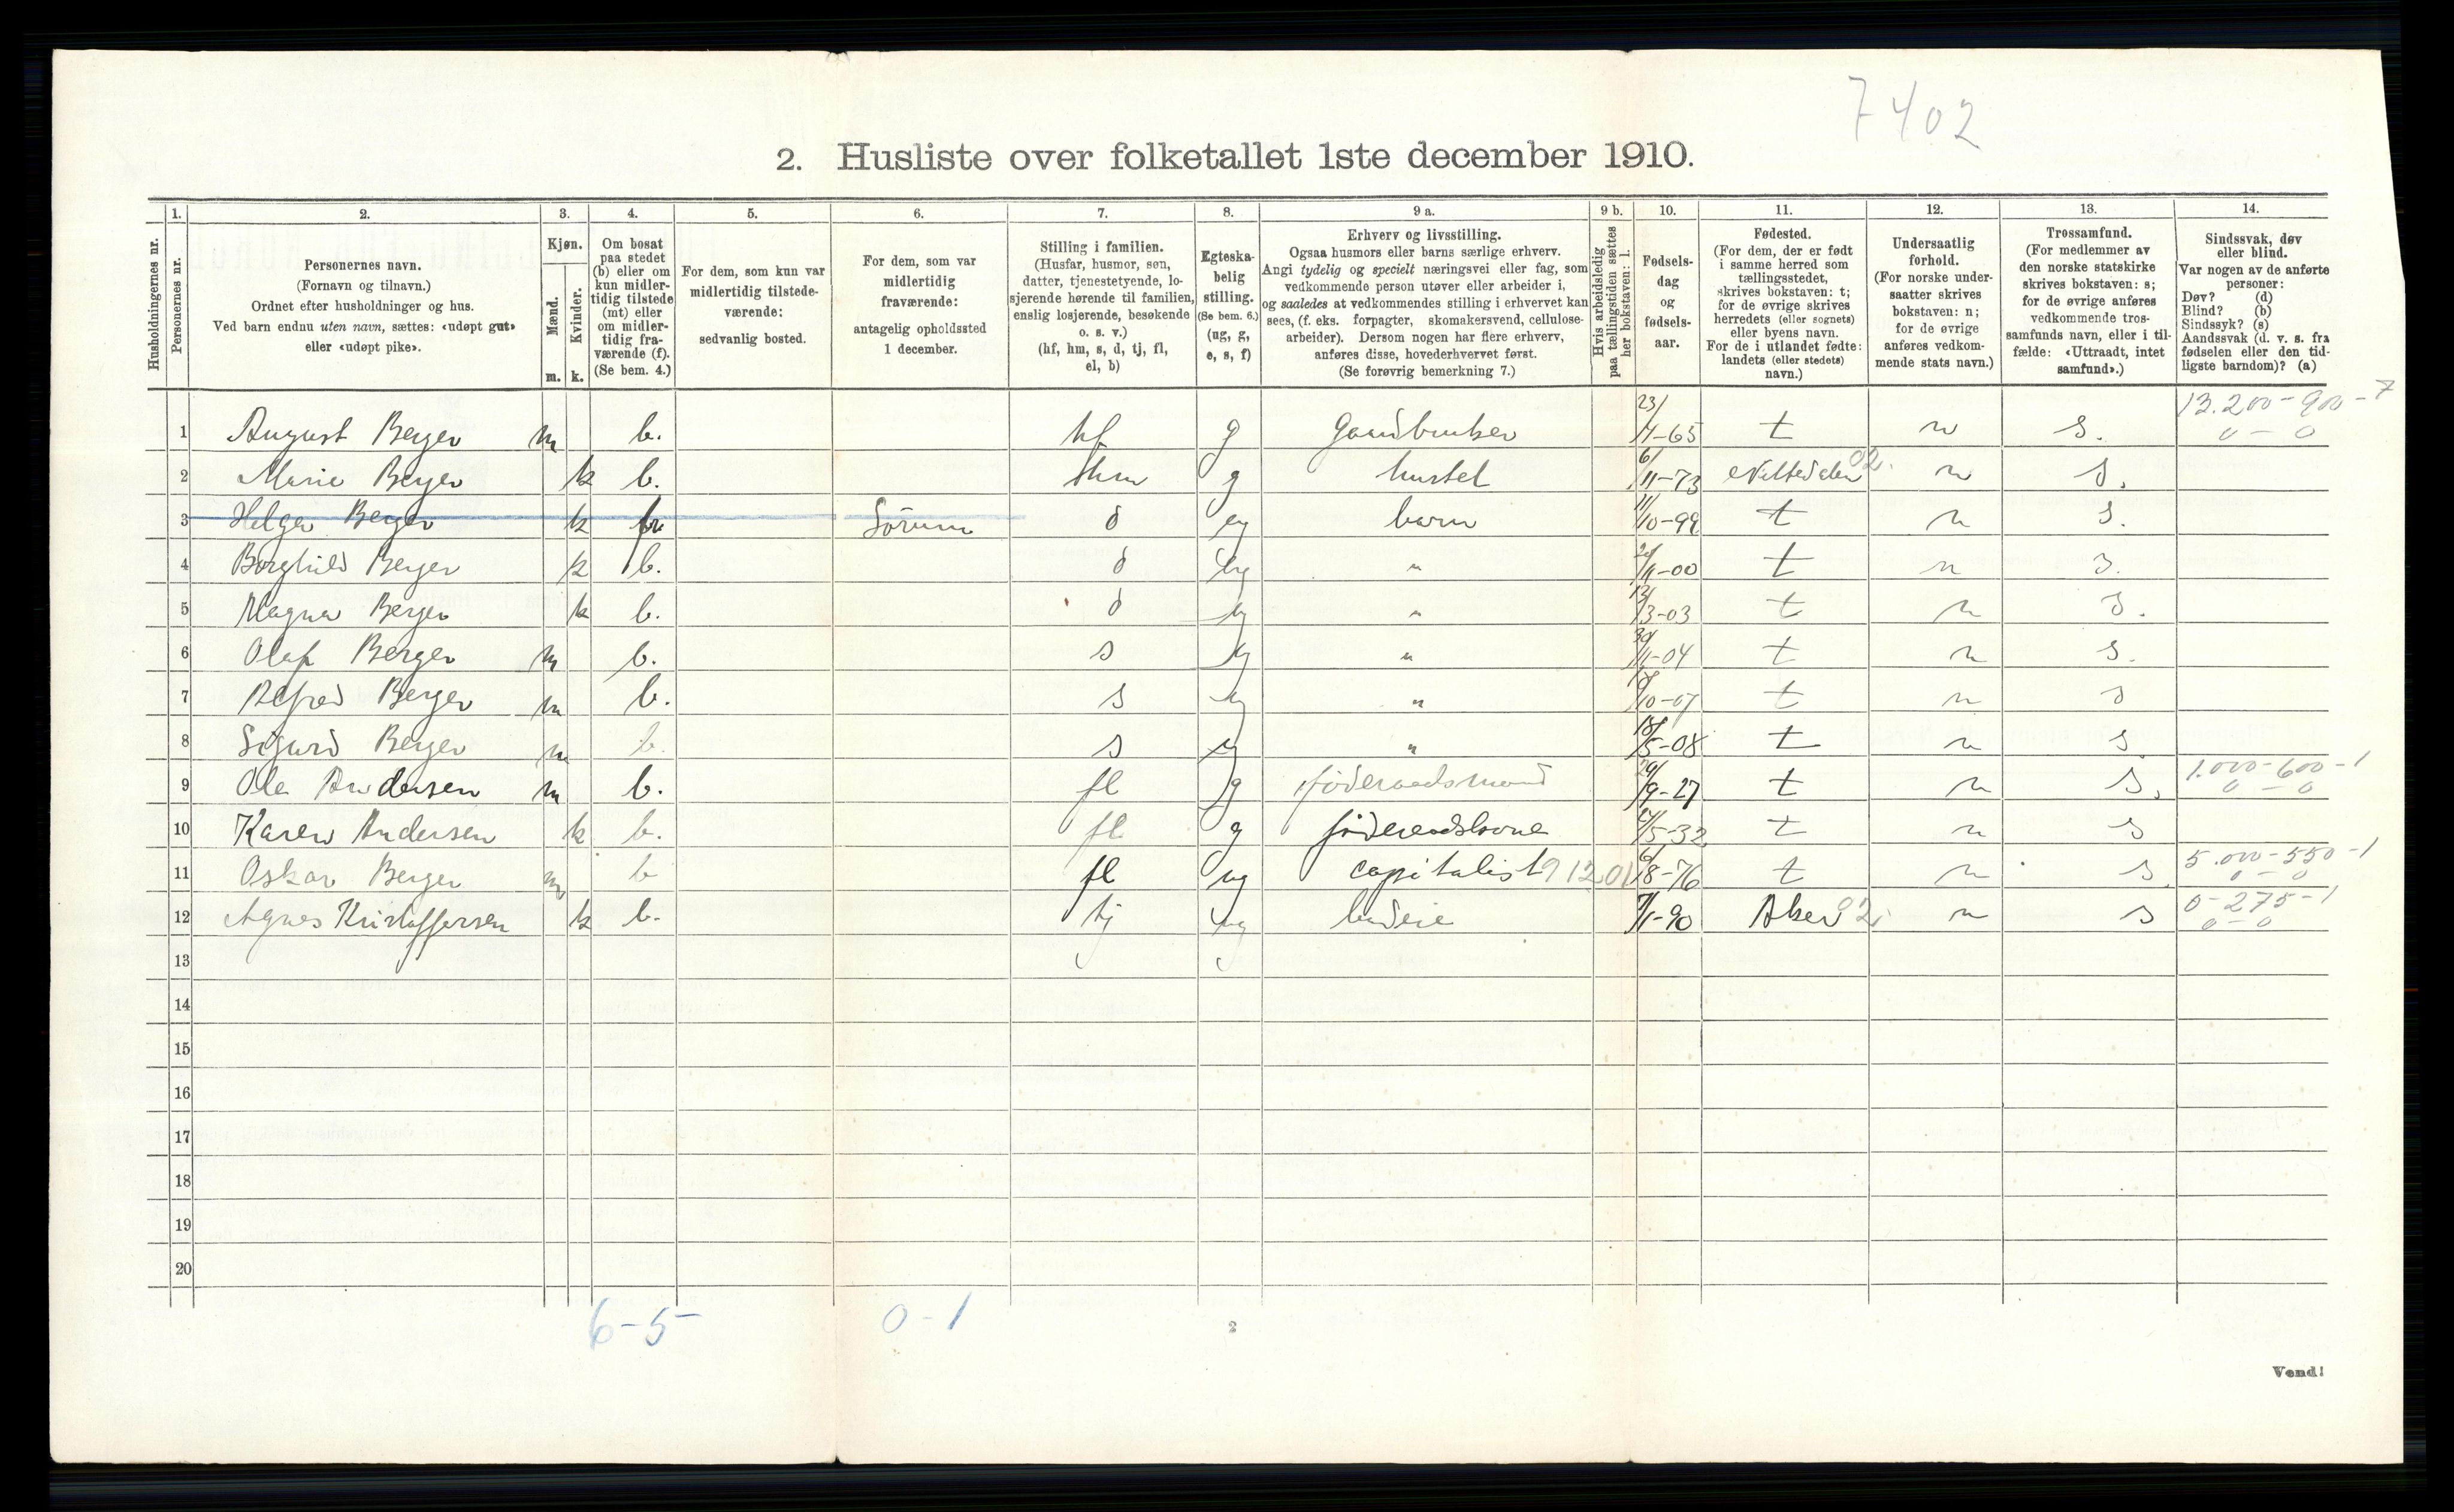 7402
2. Husliste over folketallet 1ste december 1910.
Husholdningernes nr.
1.
Personernes nr.
2.
Personernes navn.
(Fornavn og tilnavn.)
Ordnet efter husholdninger og hus.
Ved barn endnu uten navn, sættes: «udøpt gut»
eller «udøpt pike».
3.
Kjøn.
Mænd.
Kvinder.
m. k.
4.
Om bosat
paa stedet
(b) eller om
kun midler-
tidig tilstede
(mt) eller
om midler-
tidig fra-
værende (f).
(Se bem. 4.)
5.
For dem, som kun var
midlertidig tilstede-
værende:
sedvanlig bosted.
6.
For dem, som var
midlertidig
fraværende:
antagelig opholdssted
1 december.
7.
Stilling i familien.
(Husfar, husmor, søn,
datter, tjenestetyende, lo-
sjerende hørende til familien,
enslig losjerende, besøkende
o. s. v.)
(hf, hm, s, d, tj, fl,
el, b)
8.
Egteska-
belig
stilling.
(Se bem. 6.)
(ug, g,
e, s, f)
9 a.
Erhverv og livsstilling.
Ogsaa husmors eller barns særlige erhverv.
Angi tydelig og specielt næringsvei eller fag, som
vedkommende person utøver eller arbeider i,
og saaledes at vedkommendes stilling i erhvervet kan
sees, (f. eks. forpagter, skomakersvend, cellulose-
arbeider). Dersom nogen har flere erhverv,
anføres disse, hovederhvervet først.
(Se forøvrig bemerkning 7.)
9 b.
Hvis arbeidsledig
paa tællingstiden sættes
her bokstaven: l.
10.
Fødsels-
dag
og
fødsels-
aar.
11.
Fødested.
(For dem, der er født
i samme herred som
tællingsstedet,
skrives bokstaven: t;
for de øvrige skrives
herredets (eller sognets)
eller byens navn.
For de i utlandet fødte:
landets (eller stedets)
navn.)
12.
Undersaatlig
forhold.
(For norske under-
saatter skrives
bokstaven: n;
for de øvrige
anføres vedkom-
mende stats navn.)
13.
Trossamfund.
(For medlemmer av
den norske statskirke
skrives bokstaven: s;
for de øvrige anføres
vedkommende tros-
samfunds navn, eller i til-
fælde: «Uttraadt, intet
samfund».)
14.
Sindssvak, døv
eller blind.
Var nogen av de anførte
personer:
Døv? (d)
Blind? (b)
Sindssyk? (s)
Aandssvak (d. v. s. fra
fødselen eller den tid-
ligste barndom)? (a)
1 August Berger m b. hf g Gaardbruker 23/4-65 t n s. 13.200-900-7 0-0
2 Marie Berger k b. hm g hustel 6/11-73 Nittedalen 02. n s.
3 Helga Berger k Sörum d ug barn 11/10-99 t n s.
4 Borghild Berger k b. d ug " /11-00 t n s.
5 Magna Berger k b. d ug " 13/3-03 t n s.
6 Olaf Berger m b. s ug " 30/11-04 t n s.
7 Alfred Berger m b. s ug " /10-07 t n s
8 Sigurd Berger m b. s ug " 18/5-08 t n s
9 Ole Andersen m b. fl g föderaadsmand 29/9-27 t n s. 1.000-600-1 0-0
10 Karen Andersen k b. fl g föderaadskone /5-32 t n s
11 Oskar Berger m b fl ug capitalist 91201 6/8-76 t n s. 5.000-550-1 0-0
12 Agnes Kristoffersen k b. tj ug budeie 7/1-90 Aker 02. n s 0-275-1 0-0
13
14
15
16
17
18
19
20
6-5 0-1
2
Vend!